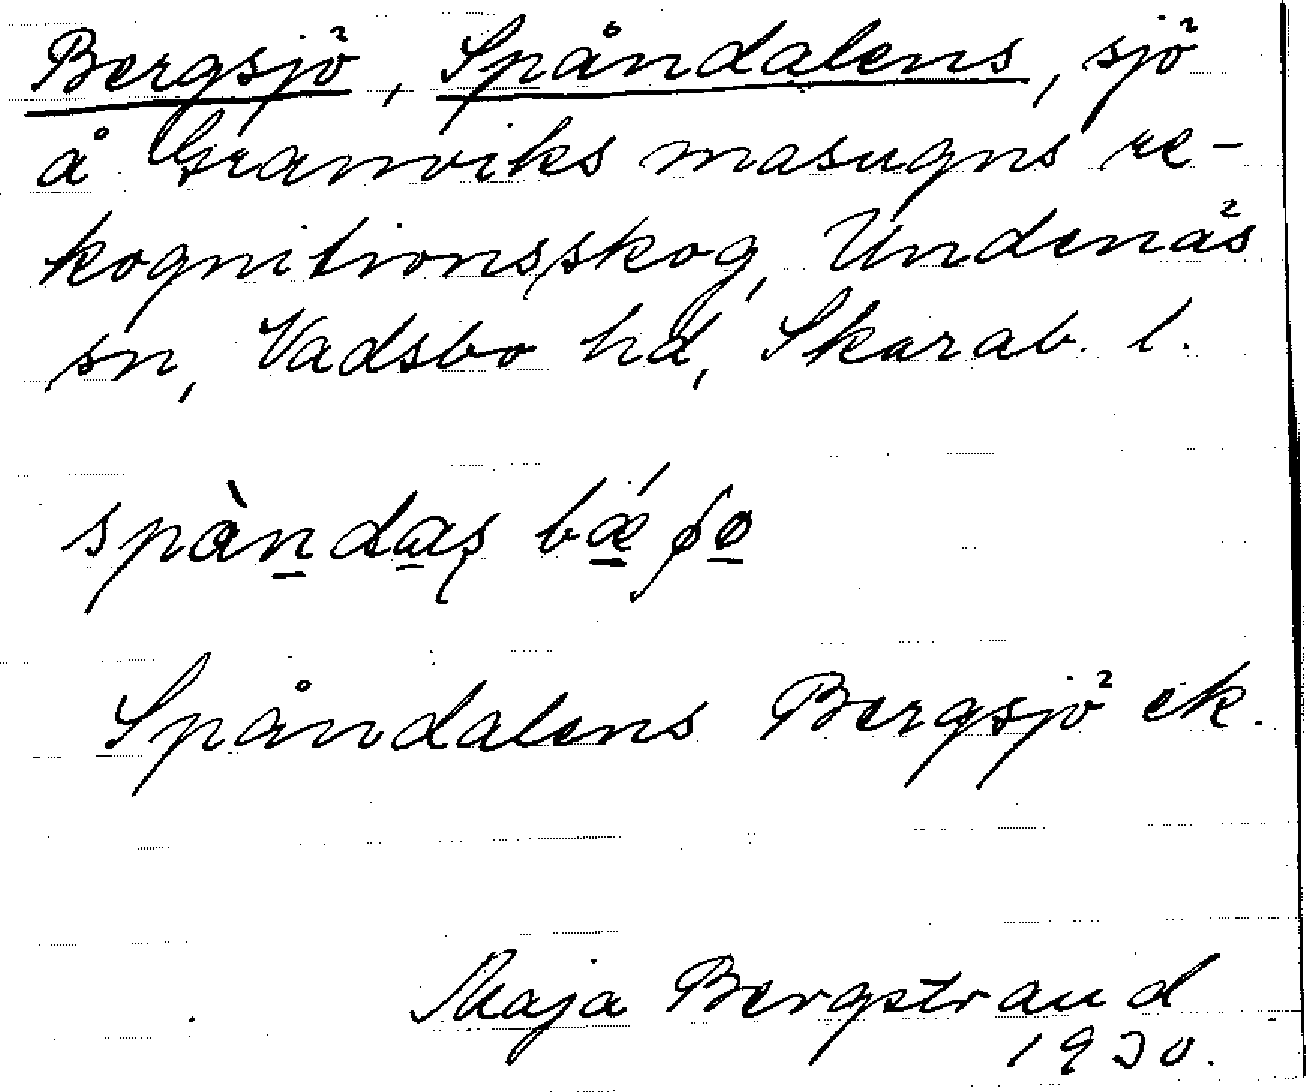 Bergsjö, Spåndalens, sjö
å Granviks masugns re-
kognitionsskog, Undenäs
sn, Vadsbo hd, Skarab. l.
Spåndalens Bergsjö ek.
Maja Bergstrand
1930.